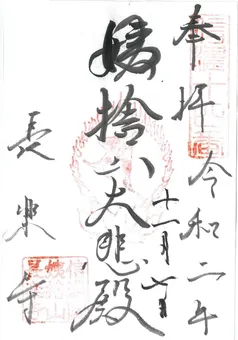 奉拝 令和二年
十一月七日
姨捨山大悲殿
長楽寺